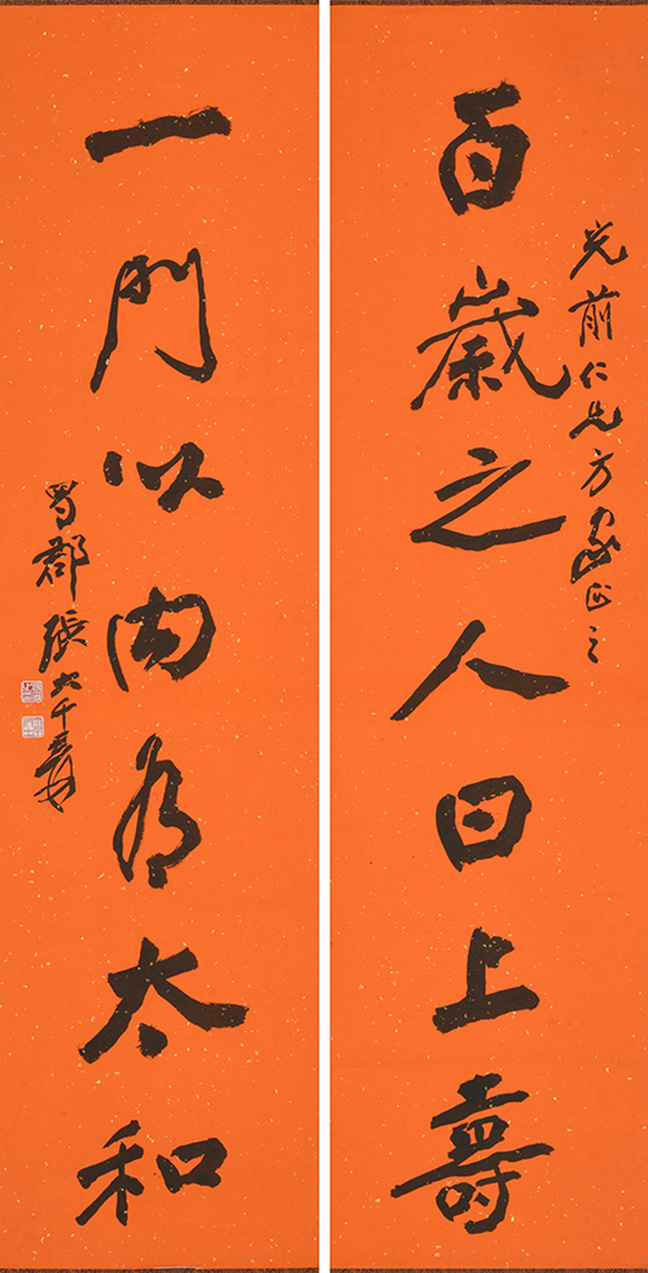 光前仁兄方家正之
百歲之人曰上壽
一門以內有太和
蜀郡張大千爰